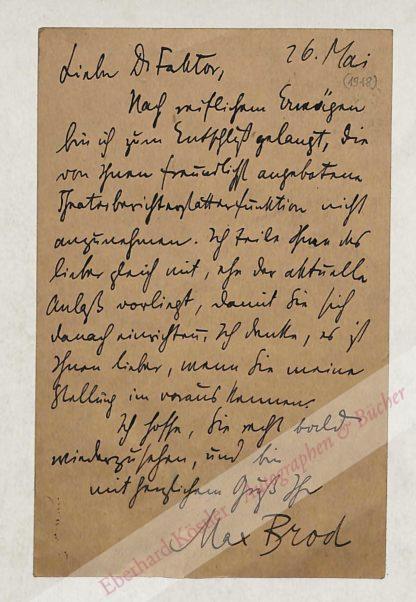 26. Mai
(1918)
Lieber Dr Faktor,
Nach reiflichem Erwägen
bin ich zum Entschluß gelangt, die
von Ihnen freundlichst angebotene
Theaterberichterstatterfunktion nicht
anzunehmen. Ich teile Ihnen das
lieber gleich mit, ehe der aktuelle
Anlaß vorliegt, damit Sie sich
danach einrichten. Ich denke, es ist
Ihnen lieber, wenn Sie meine
Stellung im voraus kennen.
Ich hoffe, Sie recht bald
wiederzusehen, und bin
mit herzlichem Gruß Ihr
Max Brod
Eberhard Köstler Autographen & Bücher